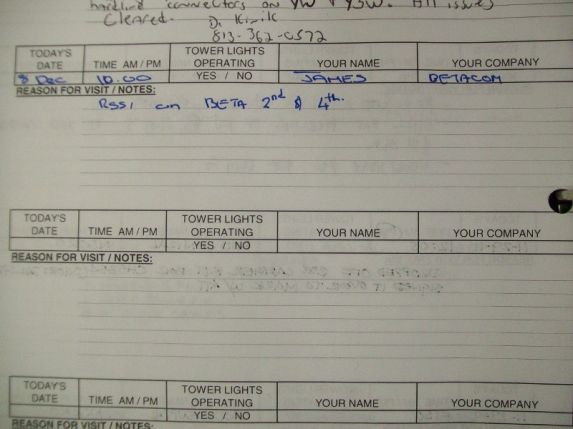 hardline connectors on YW & YSW. All issues
Cleared. D. Kirilk
813-362-0572
TODAY'S DATE TIME AM / PM TOWER LIGHTS OPERATING YES / NO YOUR NAME YOUR COMPANY
8 Dec 10.00 JAMES BETACOM
REASON FOR VISIT / NOTES:
RSSI on BETA 2nd & 4th.
TODAY'S DATE TIME AM / PM TOWER LIGHTS OPERATING YES / NO YOUR NAME YOUR COMPANY
REASON FOR VISIT / NOTES:
TODAY'S DATE TIME AM / PM TOWER LIGHTS OPERATING YES / NO YOUR NAME YOUR COMPANY
REASON FOR VISIT / NOTES: